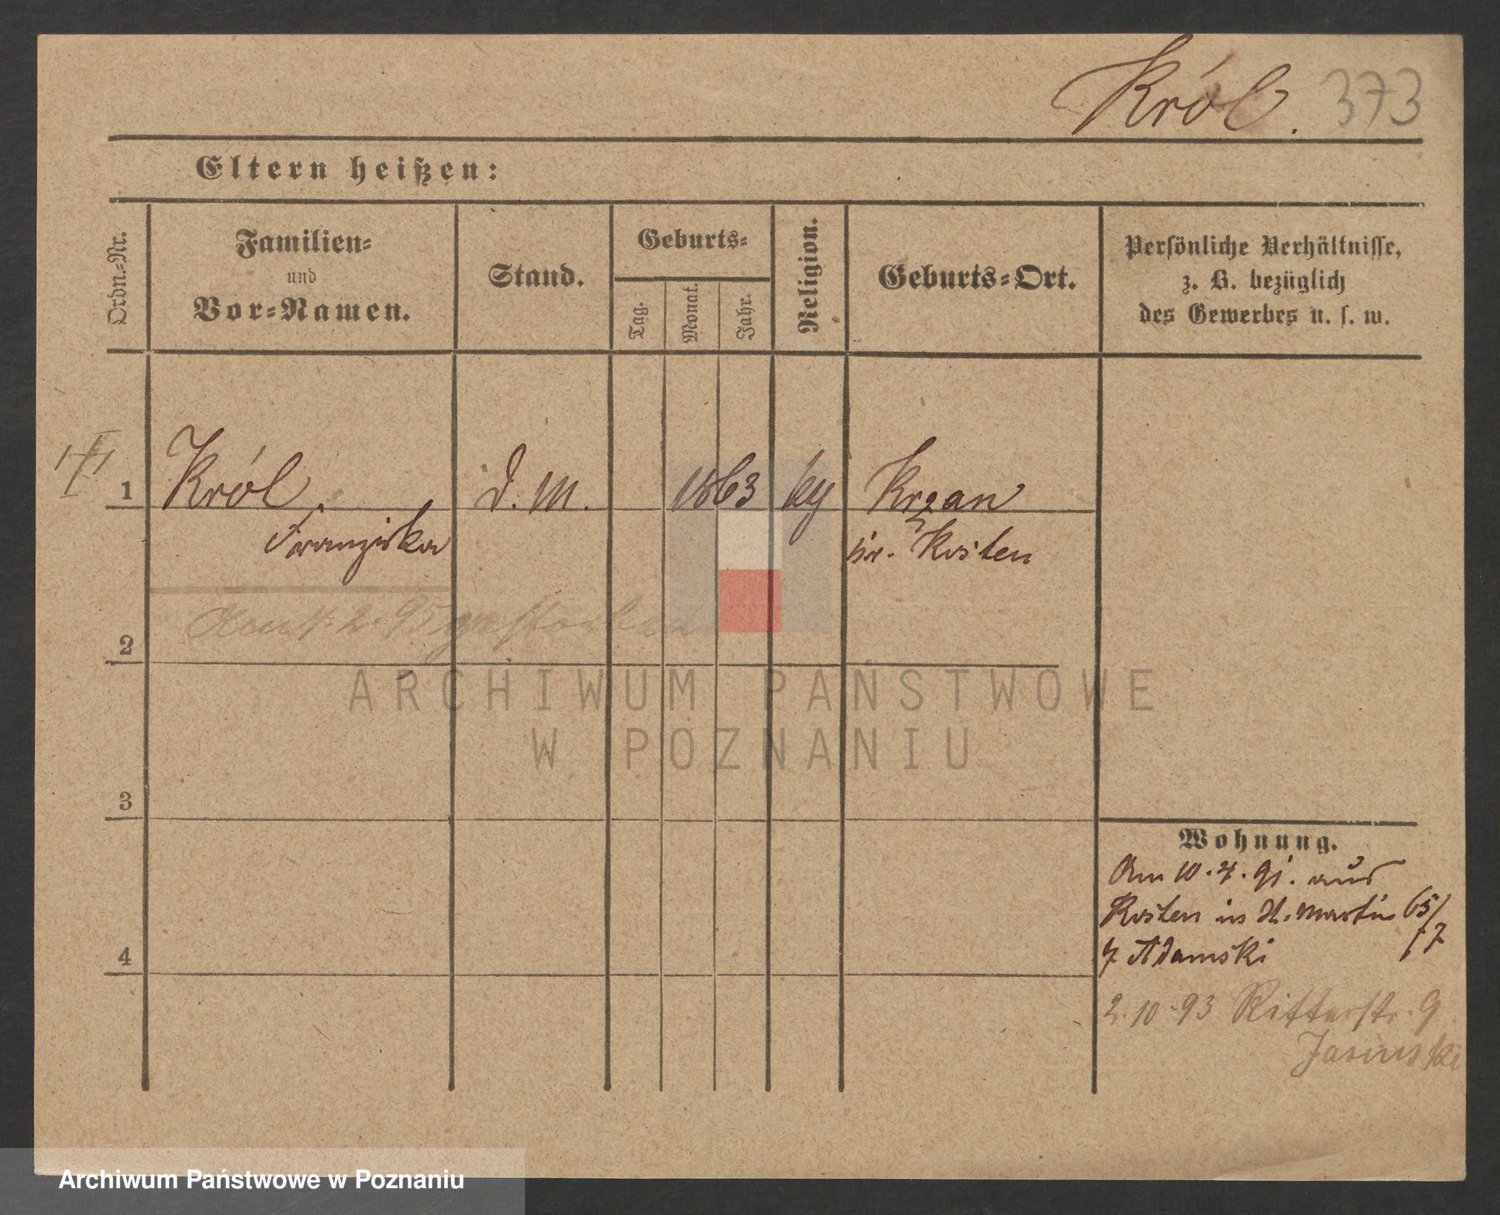 Król. 373
Eltern heißen:
Ordn.-Nr.
Familien-
und
Vor-Namen.
Stand.
Geburts-
Tag.
Monat.
Jahr.
Religion.
Geburts-Ort.
Persönliche Verhältnisse,
z. B. bezüglich
des Gewerbes u. s. w.
1 Król D. M. 1863 Krzan
Franziska Kr. Kosten
2
ARCHIWUM PAŃSTWOWE
W POZNANIU
3
Wohnung.
Am 10.4.91. aus
Kosten in St. Martin 65/
4
Adamski
2.10.93 Ritterstr. 9
Jasinski
Archiwum Państwowe w Poznaniu